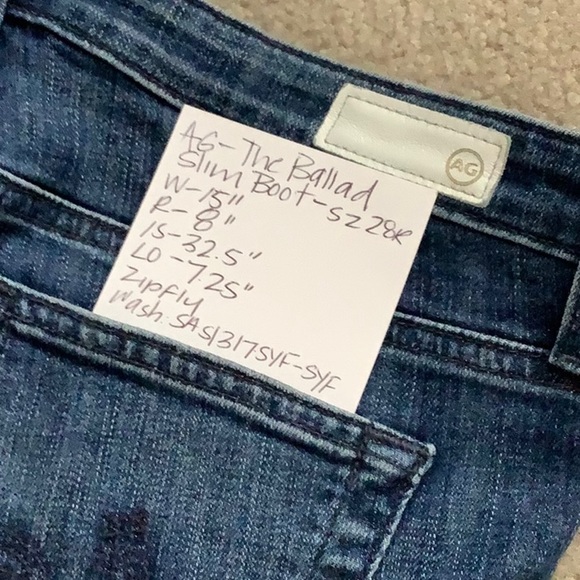 AG-The Ballad
Slim Boot-SZ 28R
W-15"
R-8"
IS-32.5"
LO-7.25"
Zipfly
Wash: SAS1317SYF-SYF
AG